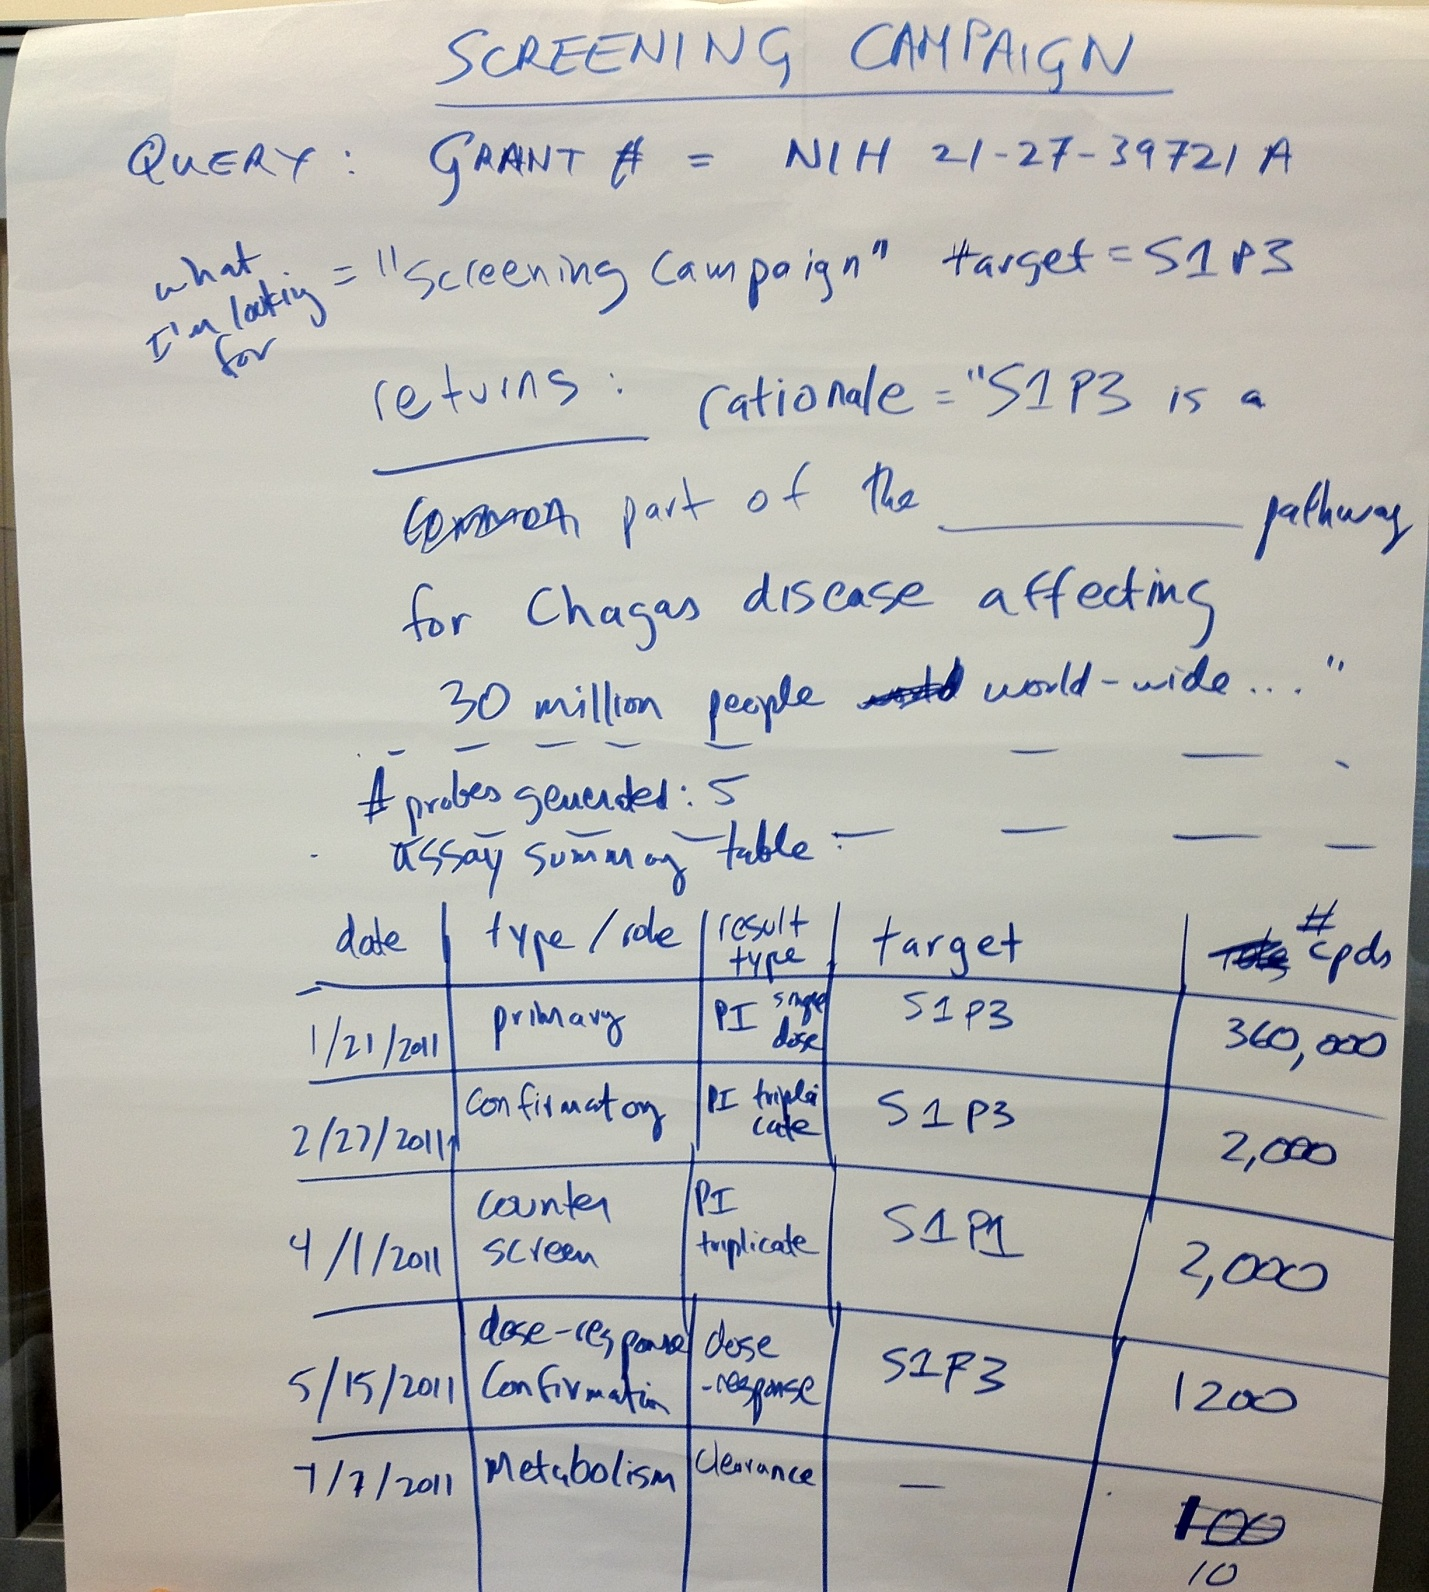 SCREENING CAMPAIGN
QUERY: GRANT # = NIH 21-27-39721 A
what I'm looking for = "Screening Campaign" target = S1P3
returns: rationale = "S1P3 is a
common part of the ______ pathway
for Chagas disease affecting
30 million people world-wide..."
# probes generated: 5
assay summary table
date type/role result type target # cpds
1/21/2011 primary PI single dose S1P3 360,000
2/27/2011 confirmatory PI triplicate S1P3 2,000
4/1/2011 counter screen PI triplicate S1P1 2,000
5/15/2011 dose-response confirmation dose-response S1P3 1200
7/7/2011 Metabolism clearance — 100
10